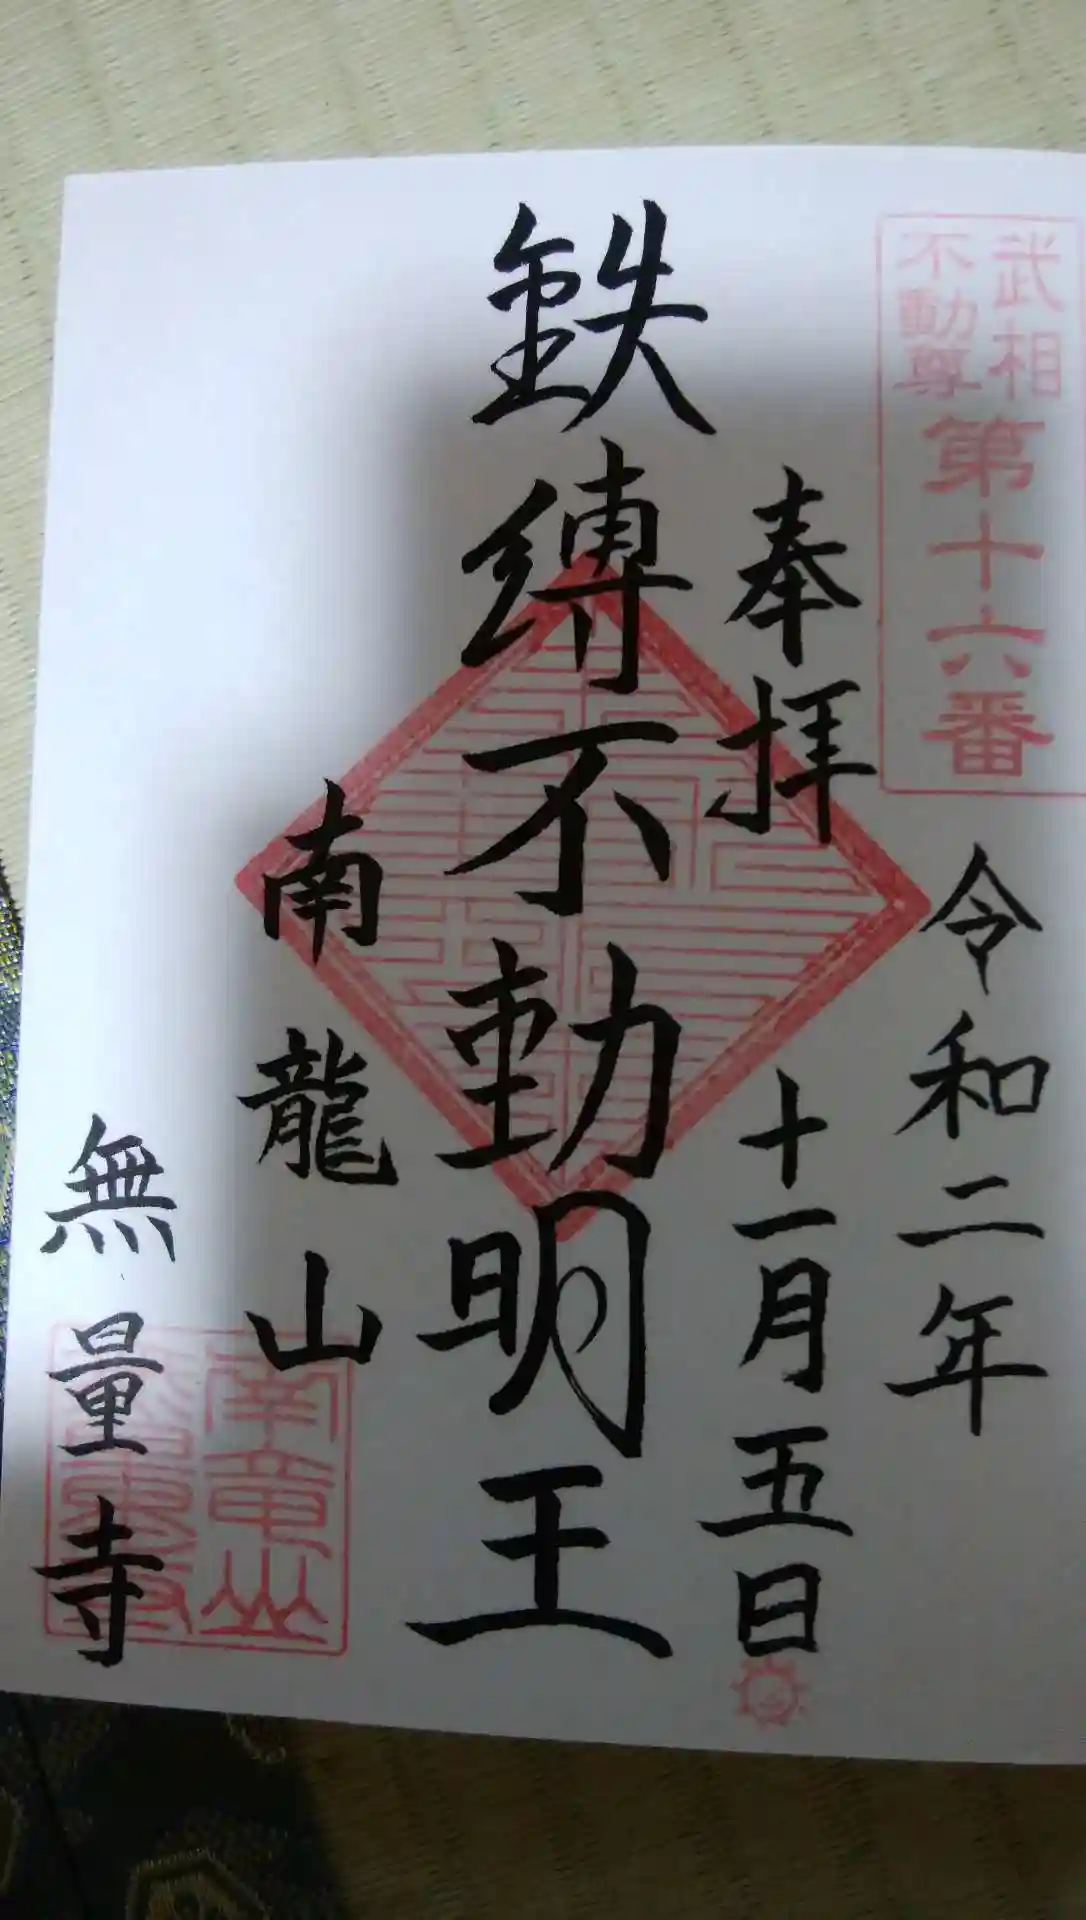 武相
不動尊
第十六番
令和二年
奉拝
十一月五日
鉄縛不動明王
南龍山
無量寺
南竜山